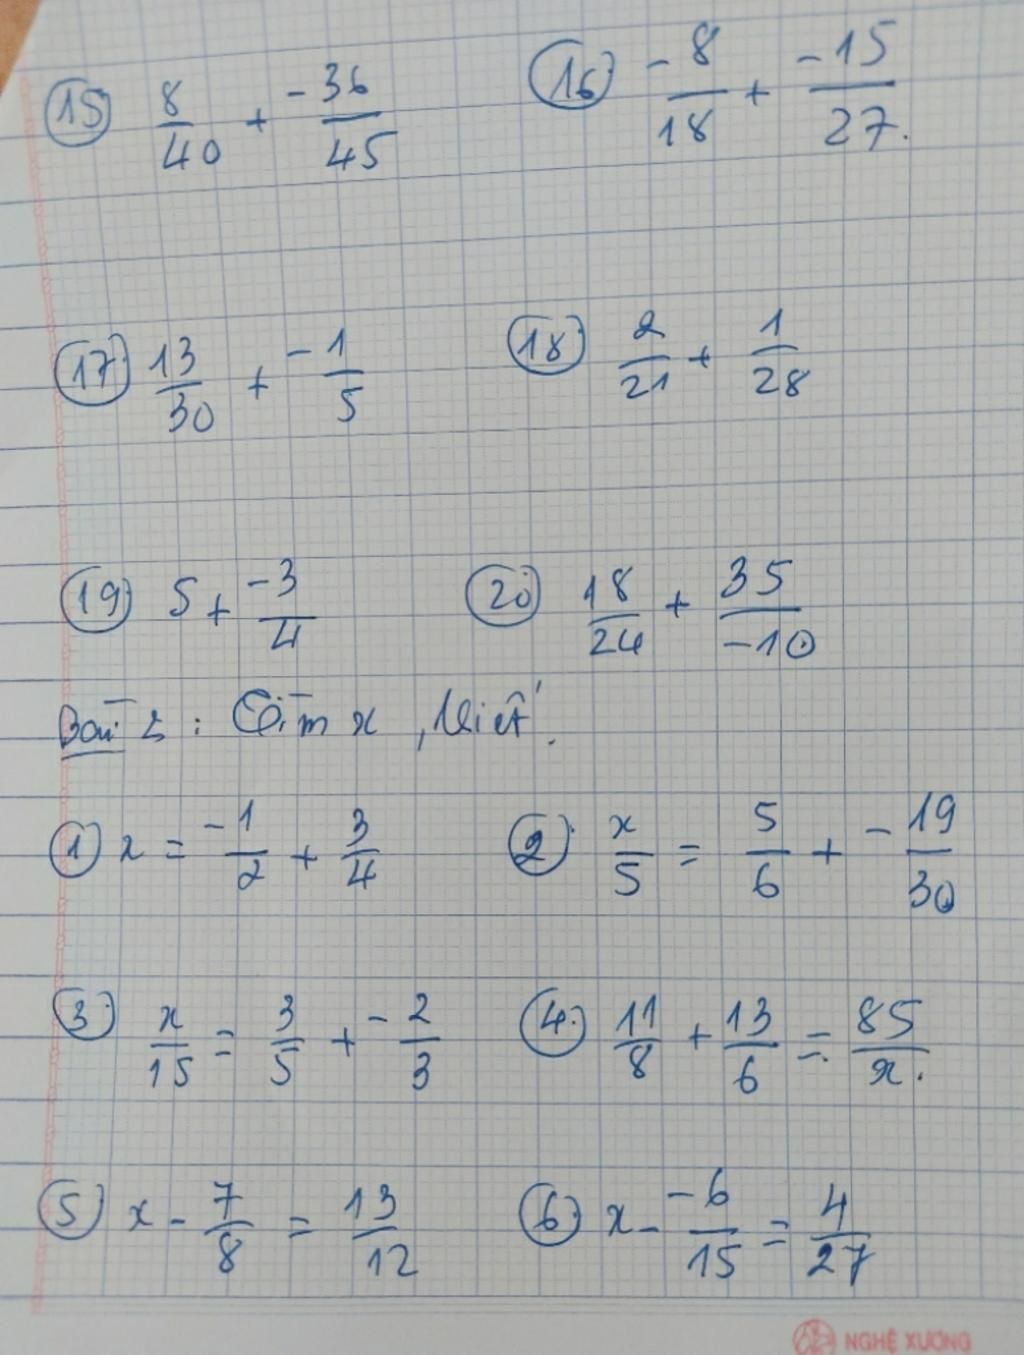 15) 8/40 + -36/45   16) -8/18 + -15/27.
17) 13/30 + -1/5   18) 2/21 + 1/28
19) 5 + -3/4   20) 18/24 + 35/-10
Bài 2 : Tìm x, biết.
1) x = -1/2 + 3/4   2) x/5 = 5/6 + -19/30
3) x/15 = 3/5 + -2/3   4) 11/8 + 13/6 = 85/x.
5) x - 7/8 = 13/12   6) x - -6/15 = 4/27
NGHỆ XƯƠNG